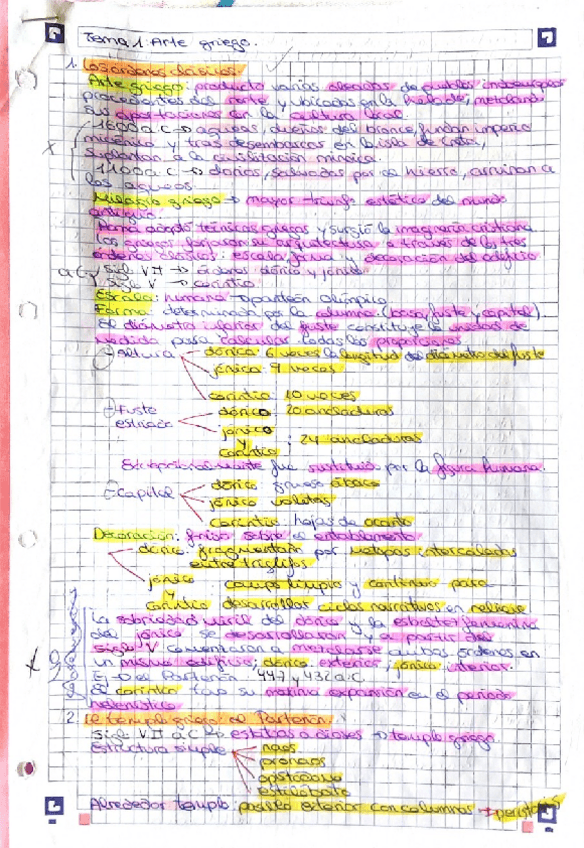 Tema 1: Arte griego.
1. Los órdenes clásicos.
Arte griego: producto varias oleadas de pueblos indoeuropeos
procedentes del norte y ubicados en la Hélade, mezclando
sus aportaciones con la cultura local.
1600 a.C → aqueos, dueños del bronce, fundan imperio
micénico y tras desembarcos en la isla de Creta,
suplantan a la civilización minoica.
1100 a.C → dorios, por el hierro, arruinan a
los aqueos.
Milagro griego → mayor triunfo estético del mundo
antiguo.
Roma adoptó técnicas griegas y surgió la imaginería cristiana
Los griegos forjaron su arquitectura a través de los tres
órdenes clásicos: escala, forma y decoración del edificio
a.C Siglo VII → órdenes dórico y jónico
Siglo V → corintio
Escala: humana → panteón Olímpico
Forma: determinada por la columna (basa, fuste y capitel).
El diámetro inferior del fuste constituye la unidad de
medida para calcular todas las proporciones
- Altura dórica 6 veces la longitud del diámetro del fuste
jónica 9 veces
corintia 10 veces
- Fuste dórico 20 acanaladuras
estriado jónico
y : 24 acanaladuras
corintio
Excepcionalmente fue sustituido por la figura humana.
- Capitel dórico: grueso ábaco
jónico volutas
corintio: hojas de acanto
Decoración: friso sobre el entablamento
dórico fragmentan por metopas intercaladas
entre triglifos
jónico : campo limpio y continuo para
y
corintio desarrollar ciclos narrativos en relieve
La sobriedad viril del dórico y la esbeltez femenina
del jónico se desarrollaron y a partir del
siglo V comenzaron a mezclarse ambos órdenes en
un mismo edificio; dórico exterior; jónico interior.
Ej → el Partenón 447 y 432 a.C.
El corintio tuvo su máxima expansión en el periodo
helenístico
2. El templo griego: el Partenón.
Siglo VII a.C → estatuas a dioses → templo griego
Estructura simple naos
pronaos
opistodomo
estilóbato
Alrededor templo: pasillo exterior con columnas → peristilo